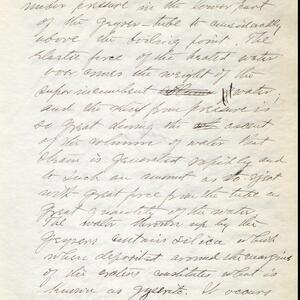 under pressure in the lower part
of the geyser-tube to considerably
above the boiling point. The
elastic force of the heated water
over comes the weight of the
super incumbent water
and the relief from pressure is
so great during the ascent
of the column of water that
steam is generated rapidly and
to such an amount as to eject
with great force from the tube a
great quantity of the water
The water thrown up by the
Geysers contains silica which
when deposited around the margins
of the craters constitutes what is
known as gyserite. It occurs